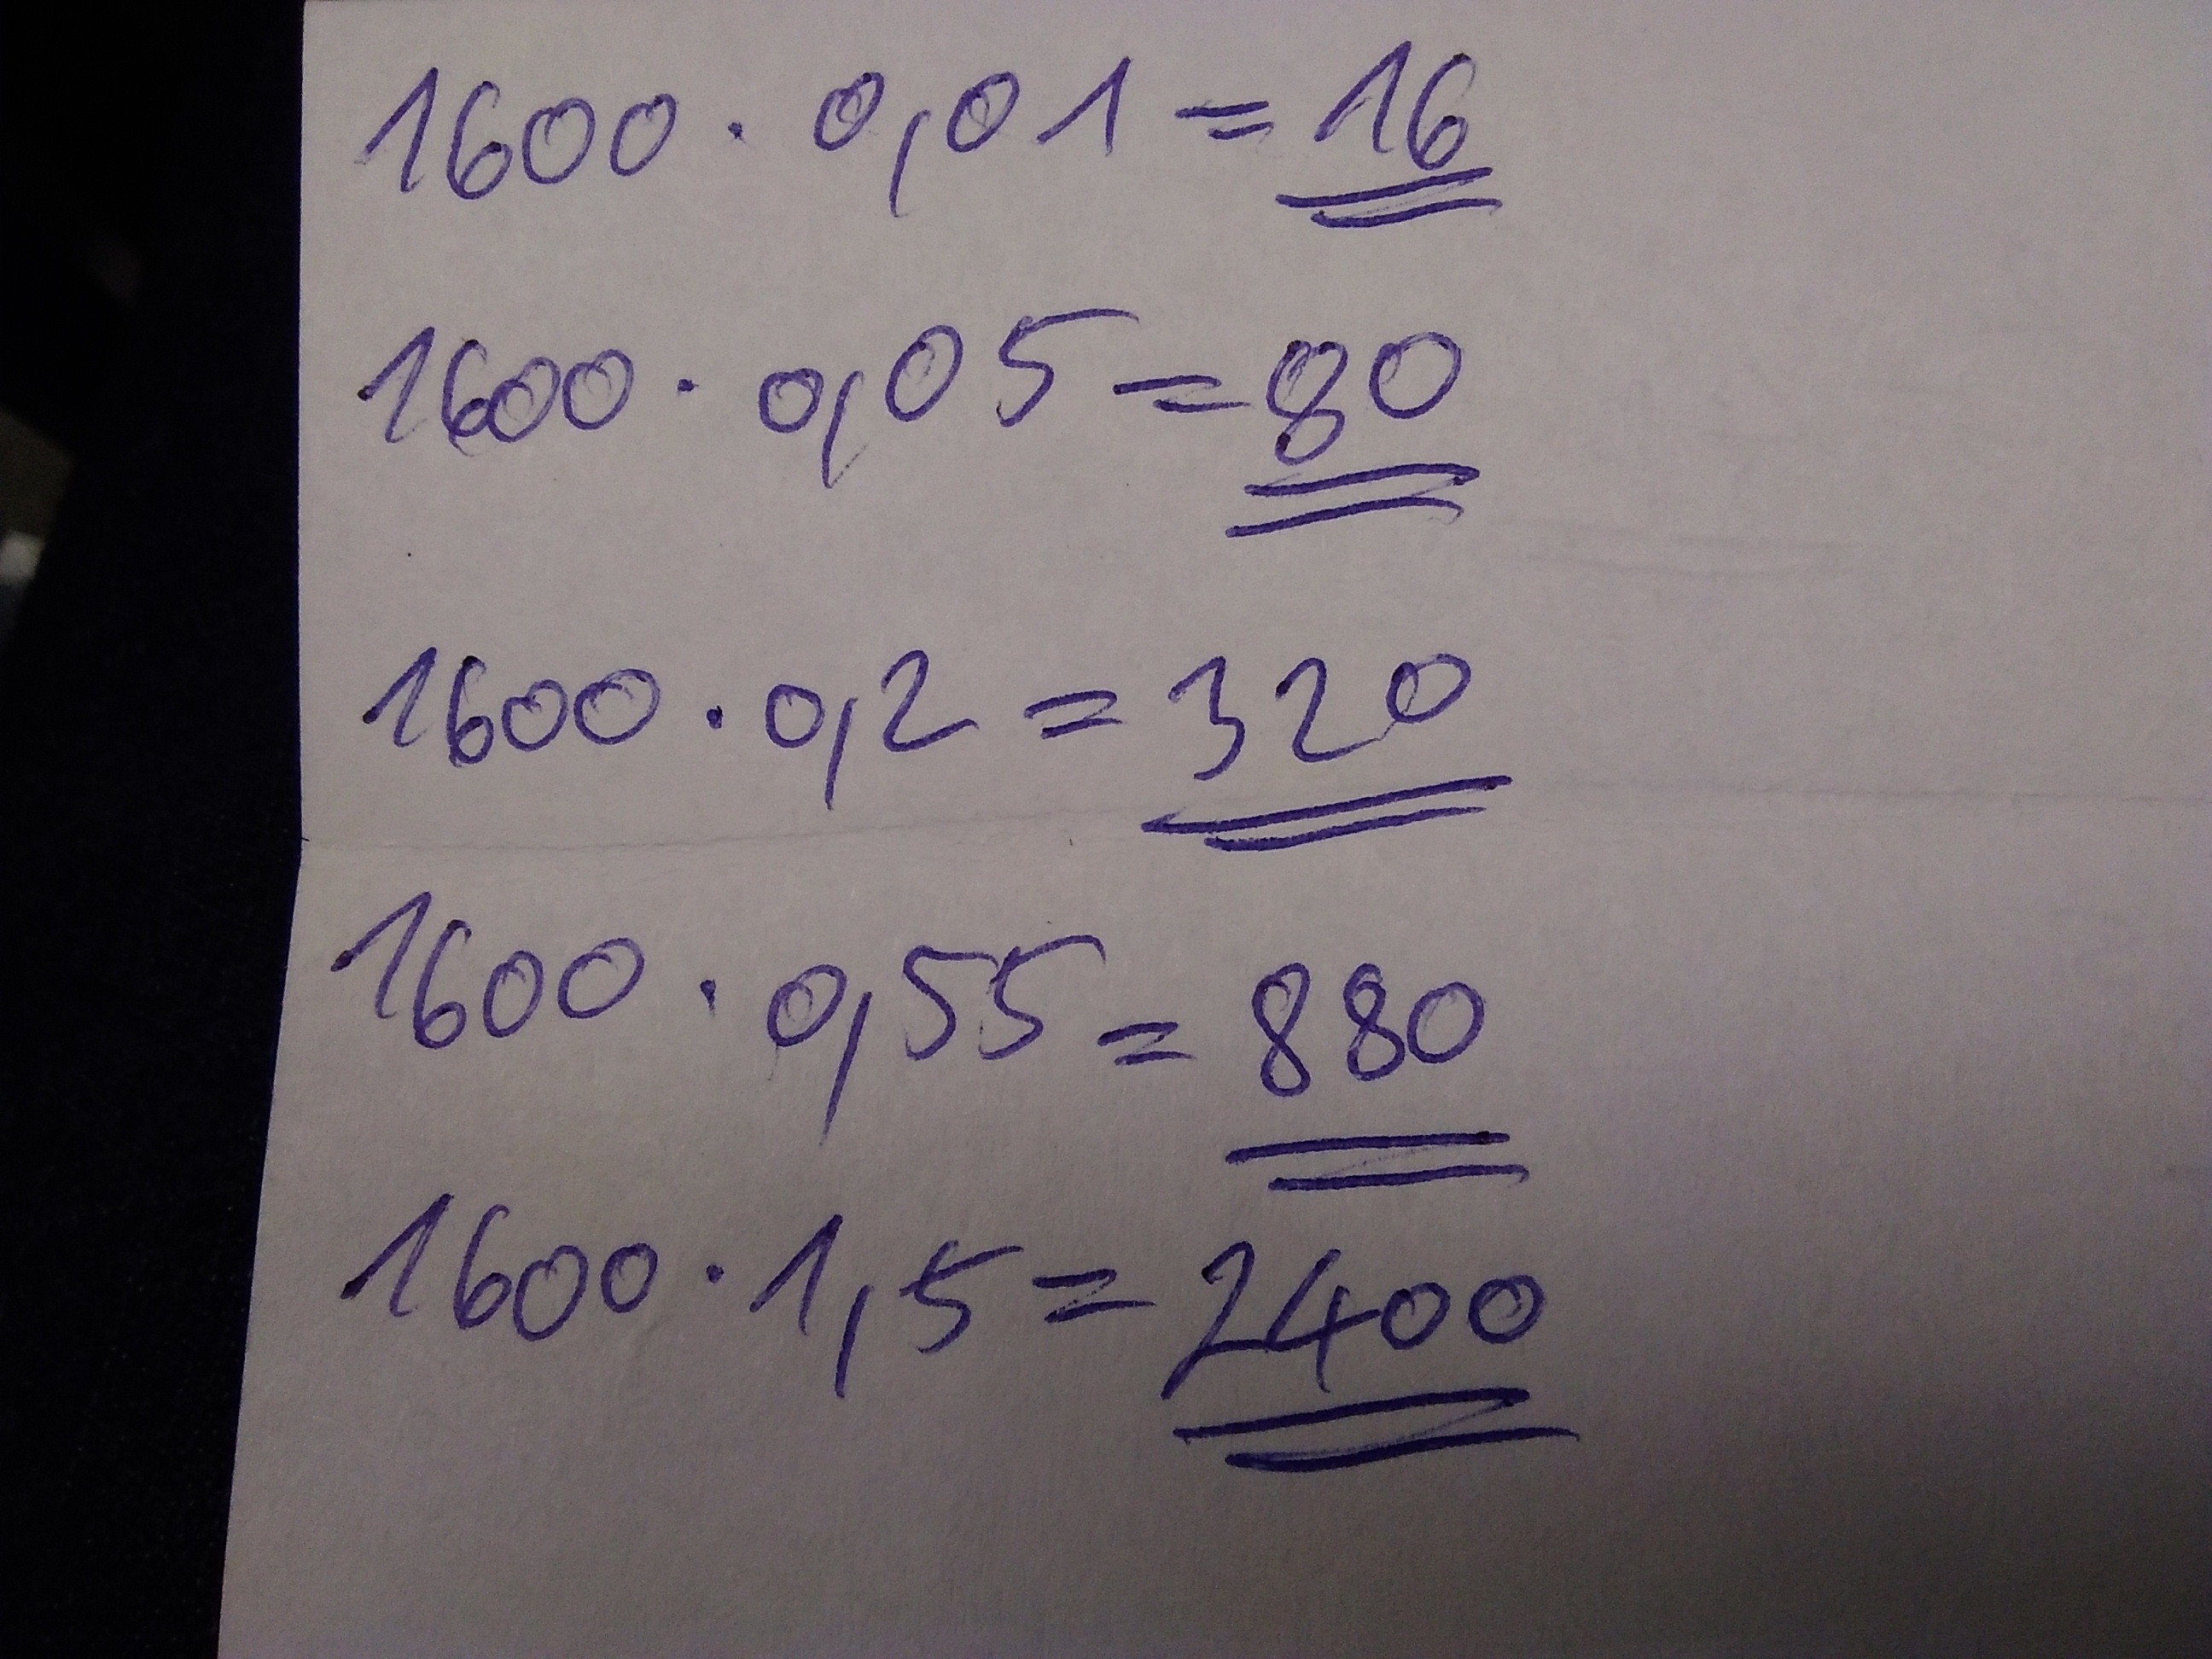 1600 · 0,01 = 16
1600 · 0,05 = 80
1600 · 0,2 = 320
1600 · 0,55 = 880
1600 · 1,5 = 2400